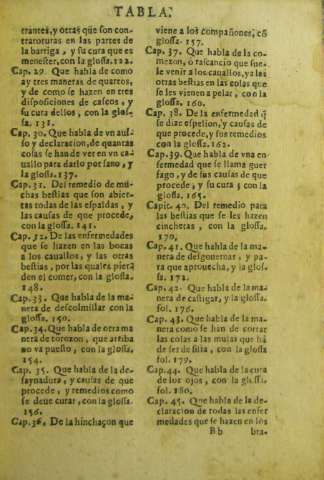 TABLA.
trantes, y otras que son con-
traroturas en las partes de
la barriga, y su cura que es
menester, con la glossa. 122.
Cap. 29. Que habla de como
ay tres maneras de quartos,
y de como se hazen en tres
disposiciones de cascos, y
su cura dellos, con la glos-
sa. 131.
Cap. 30. Que habla de vn auis-
so y declaracion, de quantas
cosas se han de ver en vn ca-
uallo para darlo por sano, y
la glossa. 137.
Cap. 31. Del remedio de mu-
chas bestias que son abier-
tas todas de las espaldas, y
las causas de que procede,
con la glossa. 141.
Cap. 32. De las enfermedades
que se hazen en las bocas
a los cauallos, y las otras
bestias, por las quales pierā
den el comer, con la glossa.
148.
Cap. 33. Que habla de la ma-
nera de descolmillar con la
glossa. 150.
Cap. 34. Que habla de otra ma
nera de torozon, que arriba
no va puesto, con la glossa.
154.
Cap. 35. Que habla de la de-
saynadura, y causas de que
procede, y remedios como
se deue curar, con la glossa.
156.
Cap. 36. De la hinchaçon que
viene a los compañones, cō
glossa. 157.
Cap. 37. Que habla de la co-
mezon, o rascancio que sue-
le venir a los cauallos, y a las
otras bestias en las colas que
se les vienen a pelar, con la
glossa. 160.
Cap. 38. De la enfermedad q̄
se dize espelion, y causas de
que procede, y sus remedios
con la glossa. 162.
Cap. 39. Que habla de vna en-
fermedad que se llama guer
fago, y de sus causas de que
procede, y su cura; con la
glossa. 165.
Capit. 40. Del remedio para
las bestias que se les hazen
cincheras, con la glossa.
170.
Cap. 41. Que habla de la ma-
nera de desgouernar, y pa-
ra que aprouecha, y la glos-
sa. 172.
Cap. 42. Que habla de la ma-
nera de castigar, y la glossa
fol. 176.
Cap. 43. Que habla de la ma-
nera como se han de cortar
las colas a las mulas que hā
de ser de silla, con la glossa
fol. 179.
Cap. 44. Que habla de la cura
de los ojos, con la glossa.
fol. 180.
Cap. 45. Que habla de la de-
claracion de todas las enfer
medades que se hazen en los
Bb bra-